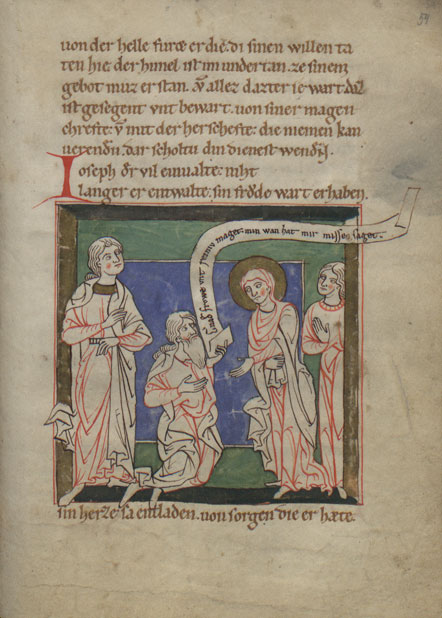 59
von der helle er die. di sinen willen ta
ten hie. der himel ist im undertan. ze sinem
gebot muz er stan. vn̄ allez dazter ie wart. daz
ist gesegent vnt bewart. von siner magen
chrefte. vn̄ mit der herschefte. die niemen kan
verendn̄. dar scholtu din dienest wendn̄.
Ioseph dͤr vil einualte. niht
langer er entwalte. sin froͤde wart erhaben.
frowe vnt reiniv maget. min wan hat mir misse saget.
sin herze sa entladen. von sorgen die er hæte.